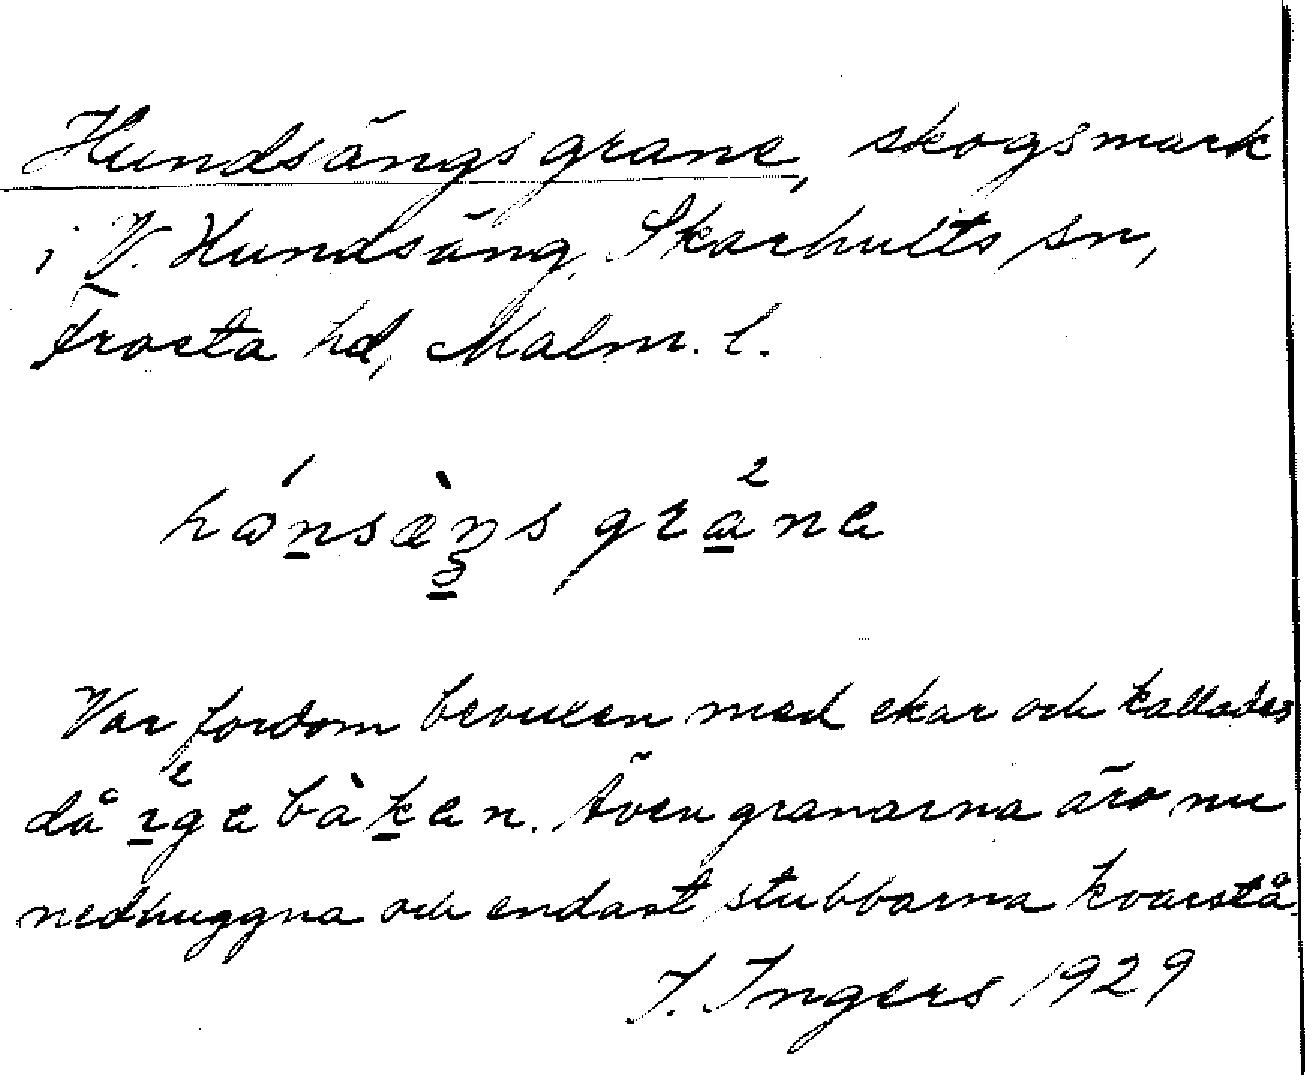 Hundsängsgrane, skogsmark
i V. Hundsäng, Skarhults sn,
Frosta hd, Malm. l.
Var fordom bevuxen med ekar och kallades
då Även granarna äro nu
nedhuggna och endast stubbarna kvarstå.
I. Ingers 1929